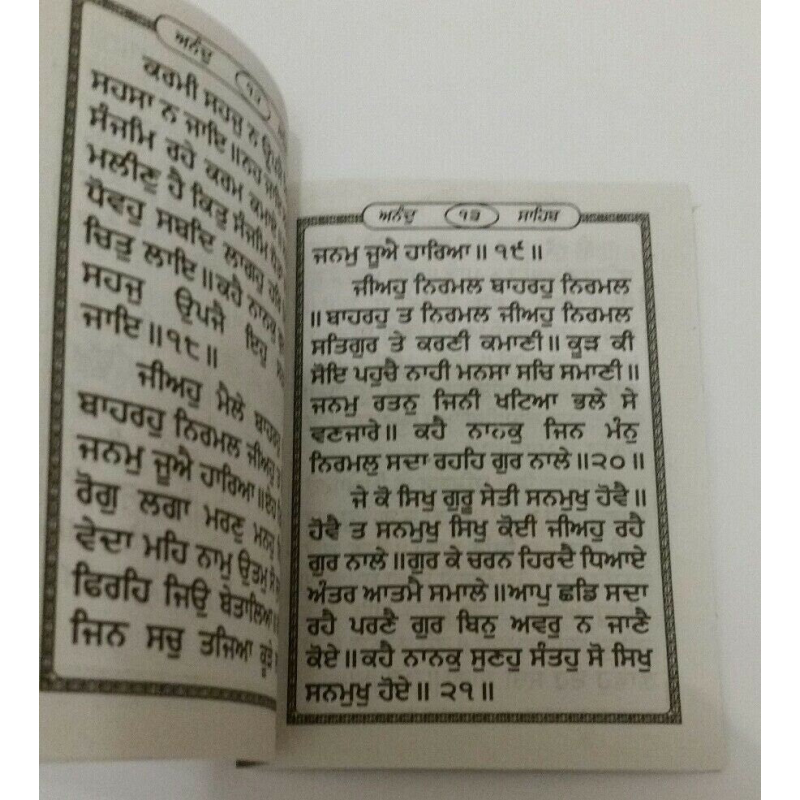 ਅਨੰਦੁ
ਕਰਮੀ ਸਹਜੁ ਨ
ਸਹਸਾ ਨ ਜਾਇ॥ਨਹ
ਸੰਜਮਿ ਰਹੇ ਕਰਮ
ਮਲੀਣੁ ਹੈ ਕਿਤੁ ਸੰਜਮਿ
ਧੋਵਹੁ ਸਬਦਿ ਲਾਗਹੁ
ਚਿਤੁ ਲਾਇ॥ਕਹੈ ਨਾਨਕੁ
ਸਹਜੁ ਉਪਜੈ ਇਹੁ
ਜਾਇ॥੧੮॥
ਜੀਅਹੁ ਮੈਲੇ
ਬਾਹਰਹੁ ਨਿਰਮਲ ਜੀਅਹੁ
ਜਨਮੁ ਜੂਐ ਹਾਰਿਆ॥
ਰੋਗੁ ਲਗਾ ਮਰਣੁ
ਵੇਦਾ ਮਹਿ ਨਾਮੁ ਉਤਮੁ
ਫਿਰਹਿ ਜਿਉ ਬੇਤਾਲਿਆ
ਜਿਨ ਸਚੁ ਤਜਿਆ ਕੂੜੇ
ਅਨੰਦੁ ੧੩ ਸਾਹਿਬ
ਜਨਮੁ ਜੂਐ ਹਾਰਿਆ॥੧੯॥
ਜੀਅਹੁ ਨਿਰਮਲ ਬਾਹਰਹੁ ਨਿਰਮਲ
॥ਬਾਹਰਹੁ ਤ ਨਿਰਮਲ ਜੀਅਹੁ ਨਿਰਮਲ
ਸਤਿਗੁਰ ਤੇ ਕਰਣੀ ਕਮਾਣੀ॥ ਕੂੜ ਕੀ
ਸੋਇ ਪਹੁਚੈ ਨਾਹੀ ਮਨਸਾ ਸਚਿ ਸਮਾਣੀ॥
ਜਨਮੁ ਰਤਨੁ ਜਿਨੀ ਖਟਿਆ ਭਲੇ ਸੇ
ਵਣਜਾਰੇ॥ ਕਹੈ ਨਾਨਕੁ ਜਿਨ ਮੰਨੁ
ਨਿਰਮਲੁ ਸਦਾ ਰਹਹਿ ਗੁਰ ਨਾਲੇ॥੨੦॥
ਜੇ ਕੋ ਸਿਖੁ ਗੁਰੂ ਸੇਤੀ ਸਨਮੁਖੁ ਹੋਵੈ॥
ਹੋਵੈ ਤ ਸਨਮੁਖੁ ਸਿਖੁ ਕੋਈ ਜੀਅਹੁ ਰਹੈ
ਗੁਰ ਨਾਲੇ॥ਗੁਰ ਕੇ ਚਰਨ ਹਿਰਦੈ ਧਿਆਏ
ਅੰਤਰ ਆਤਮੈ ਸਮਾਲੇ॥ਆਪੁ ਛਡਿ ਸਦਾ
ਰਹੈ ਪਰਣੈ ਗੁਰ ਬਿਨੁ ਅਵਰੁ ਨ ਜਾਣੈ
ਕੋਏ॥ਕਹੈ ਨਾਨਕੁ ਸੁਣਹੁ ਸੰਤਹੁ ਸੋ ਸਿਖੁ
ਸਨਮੁਖੁ ਹੋਏ॥ ੨੧॥